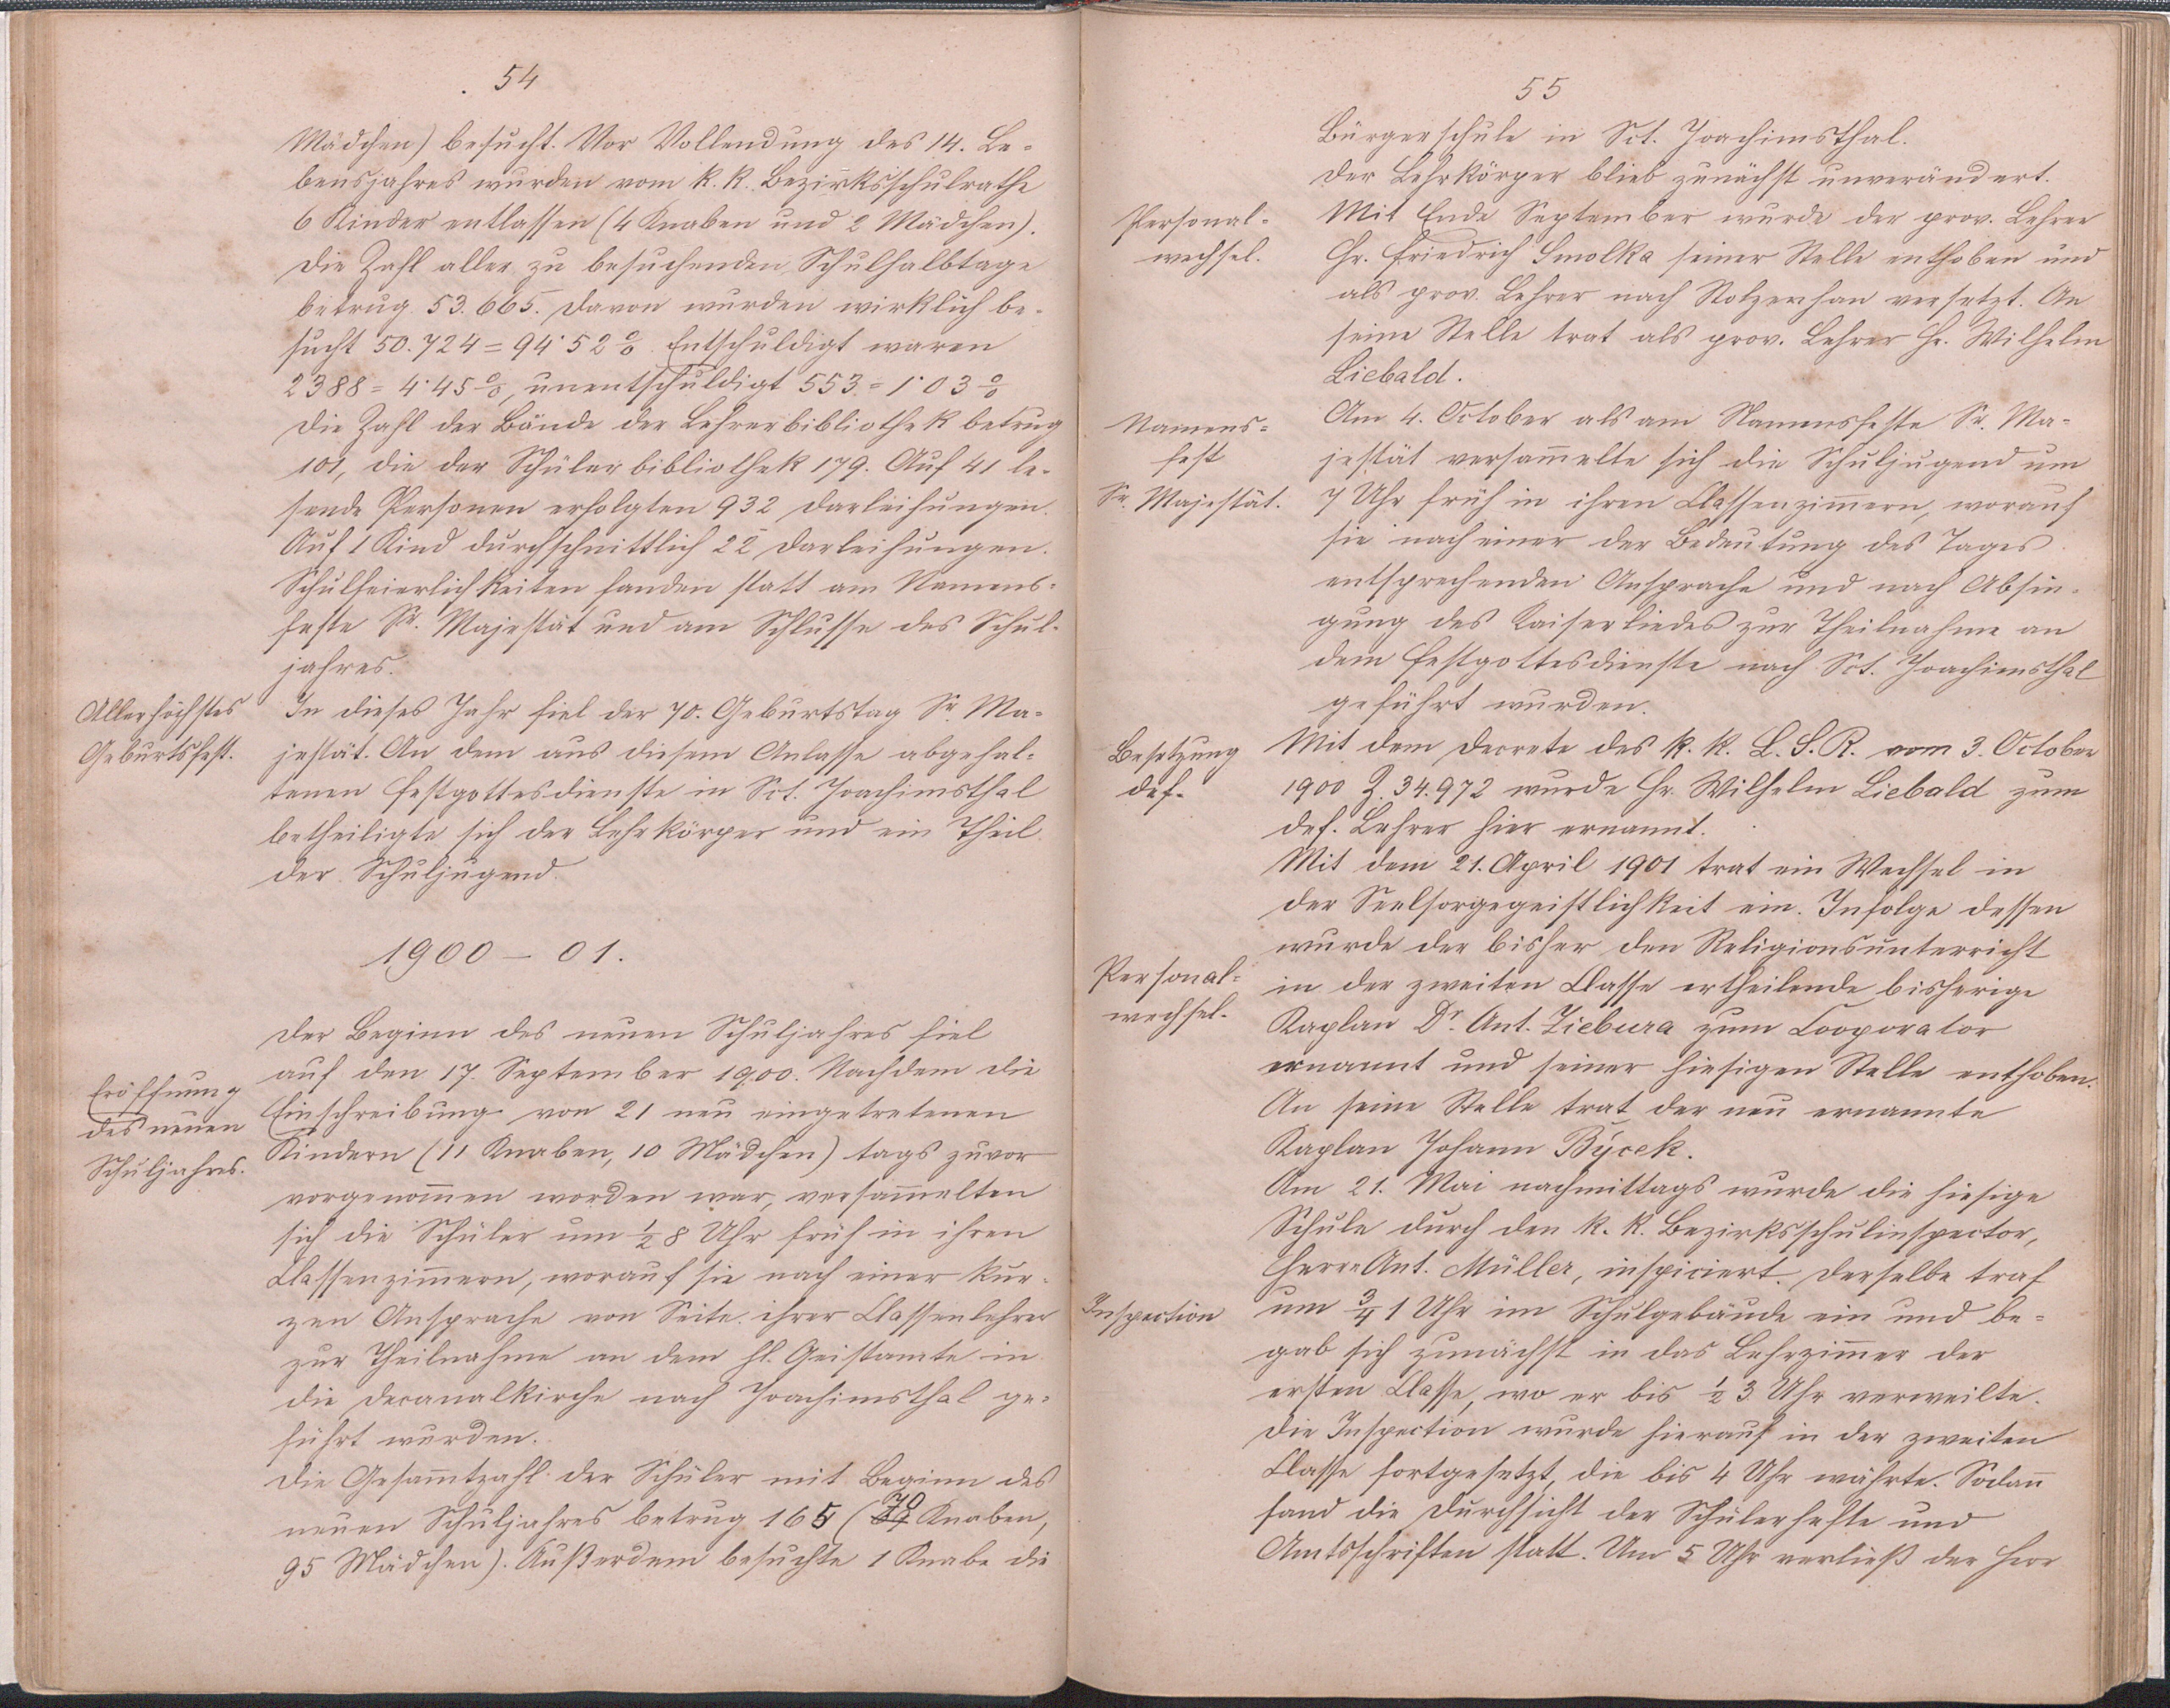 54
Mädchen) besucht. Vor Vollendung des 14. Le-
bensjahres wurden vom k. k. Bezirksschulrathe
6 Kinder entlassen (4 Knaben und 2 Mädchen).
Die Zahl aller zu besuchenden Schulhalbtage
betrug 53.665. Davon wurden wirklich be-
sucht 50.724 = 94·52 %. Entschuldigt waren
2388 = 4·45 %, unentschuldigt 553 = 1·03 %
Die Zahl der Bände der Lehrerbibliothek betrug
101, die der Schülerbibliothek 179. Auf 41 le-
sende Personen erfolgten 932 Darleihungen.
Auf 1 Kind durchschnittlich 22 Darleihungen.
Schulfeierlichkeiten fanden statt am Namens-
feste Sr. Majestät und am Schlusse des Schul-
jahres.
Allerhöchstes
Geburtsfest.
In dieses Jahr fiel der 70. Geburtstag Sr. Ma-
jestät. An dem aus diesem Anlasse abgehal-
tenen Festgottesdienste in Sct. Joachimsthal
betheiligte sich der Lehrkörper und ein Theil
der Schuljugend.
1900 – 01.
Eröffnung
des neuen
Schuljahres.
Der Beginn des neuen Schuljahres fiel
auf den 17. September 1900. Nachdem die
Einschreibung von 21 neu eingetretenen
Kindern (11 Knaben, 10 Mädchen) tags zuvor
vorgenom̄en worden war, versam̄elten
sich die Schüler um ½ 8 Uhr früh in ihren
Classenzim̄ern, worauf sie nach einer kur-
zen Ansprache von Seite ihrer Classenlehrer
zur Theilnahme an dem hl. Geistamte in
die Decanalkirche nach Joachimsthal ge-
führt wurden.
Die Gesam̄tzahl der Schüler mit Beginn des
neuen Schuljahres betrug 165 (70 Knaben,
95 Mädchen). Außerdem besuchte 1 Knabe die
55
Bürgerschule in Sct. Joachimsthal.
Der Lehrkörper blieb zunächst unverändert.
Personal-
wechsel.
Mit Ende September wurde der prov. Lehrer
Hr. Friedrich Smolka seiner Stelle enthoben und
als prov. Lehrer nach Stolzenhan versetzt. An
seine Stelle trat als prov. Lehrer Hr. Wilhelm
Liebald.
Namens-
fest
Sr. Majestät.
Am 4. October als am Namensfeste Sr. Ma-
jestät versam̄elte sich die Schuljugend um
7 Uhr früh in ihren Classenzim̄ern, worauf
sie nach einer der Bedeutung des Tages
entsprechenden Ansprache und nach Absin-
gung des Kaiserliedes zur Theilnahme an
dem Festgottesdienste nach Sct. Joachimsthal
geführt wurden.
Besetzung
def.
Mit dem Decrete des k. k. L. S. R. vom 3. October
1900 Z. 34.972 wurde Hr. Wilhelm Liebald zum
def. Lehrer hier ernannt.
Mit dem 21. April 1901 trat ein Wechsel in
der Seelsorgegeistlichkeit ein. Infolge dessen
wurde der bisher den Religionsunterricht
Personal-
wechsel.
in der zweiten Classe ertheilende bisherige
Kaplan Dr. Ant. Ziebura zum Cooporator
ernannt und seiner hiesigen Stelle enthoben.
An seine Stelle trat der neu ernannte
Kaplan Johann Býcek.
Am 21. Mai nachmittags wurde die hiesige
Schule durch den k. k. Bezirksschulinspector,
Herrn Ant. Müller, inspiciert. Derselbe traf
Inspection
um ¾ 1 Uhr im Schulgebäude ein und be-
gab sich zunächst in das Lehrzim̄er der
ersten Classe, wo er bis ½ 3 Uhr verweilte.
Die Inspection wurde hierauf in der zweiten
Classe fortgesetzt, die bis 4 Uhr währte. Sodan̄
fand die Durchsicht der Schülerhefte und
Amtsschriften statt. Um 5 Uhr verließ der Herr